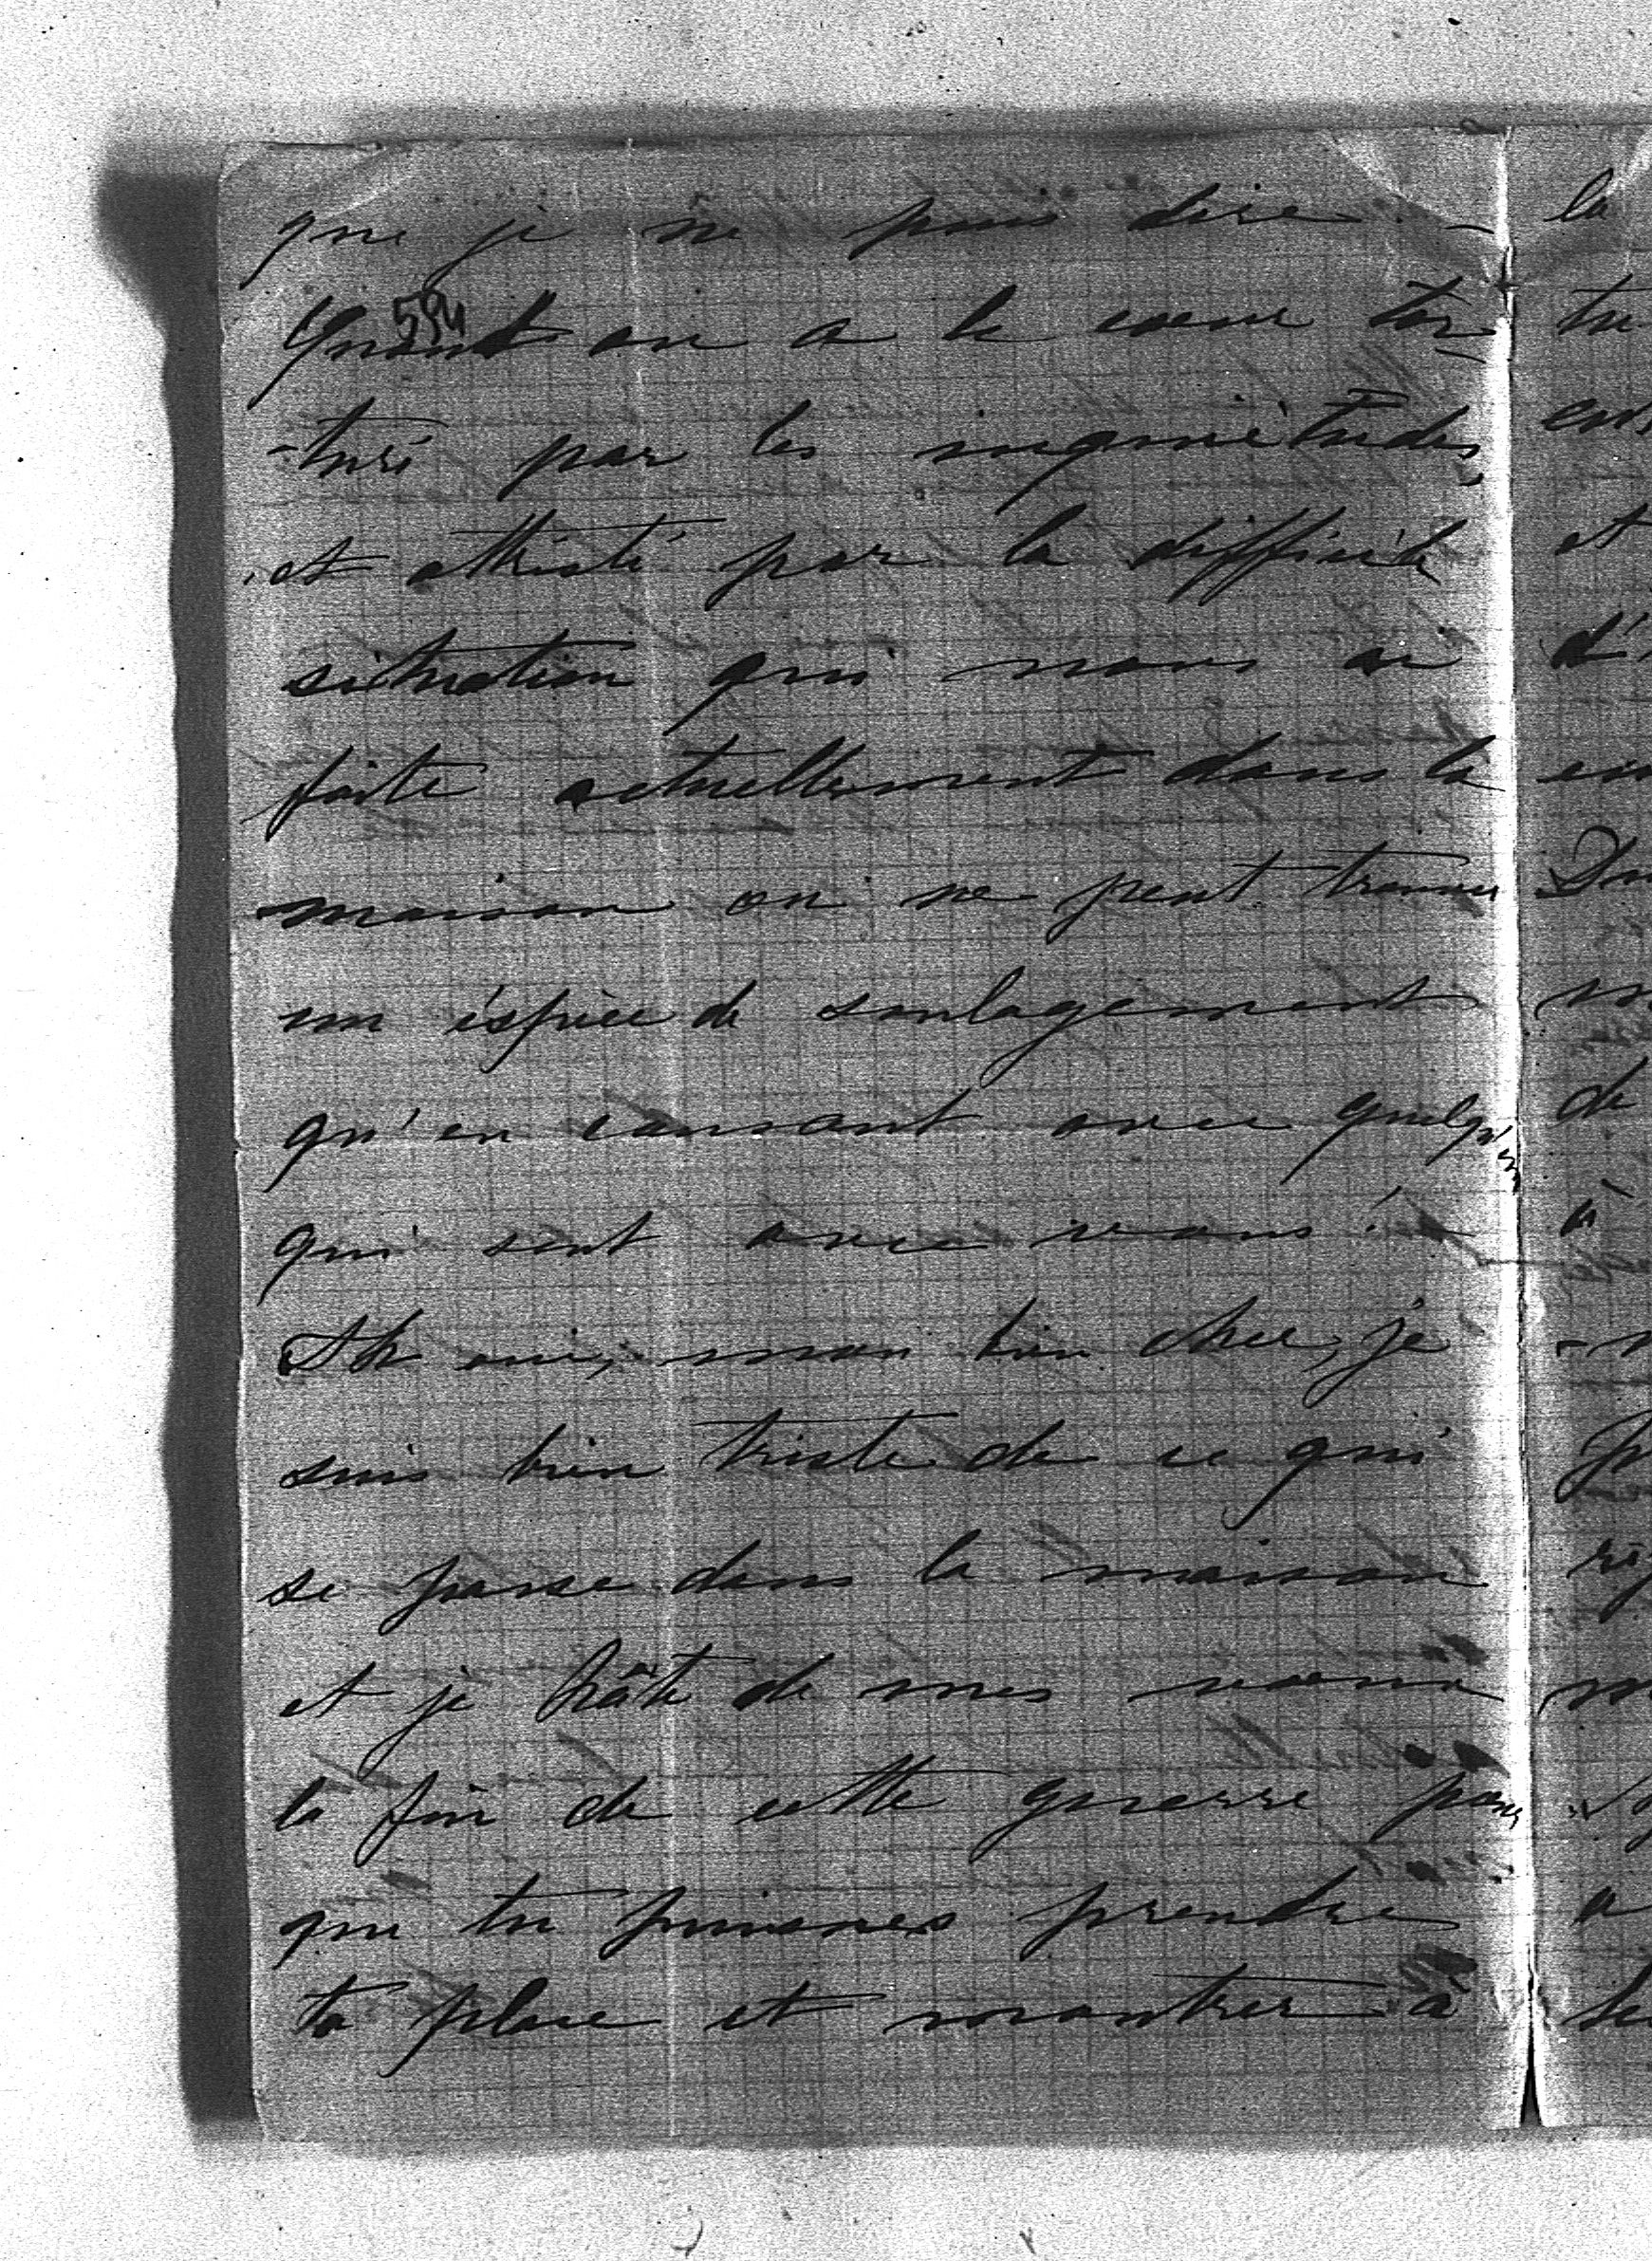 que je ne puis dire –
594
Quand on a le cœur tor
-turé par les inquiétudes,
et attristé par la difficile
situation qui nous est
faite actuellement dans la
maison on ne peut trouver
un éspèce de soulagement
qu'en causant avec quelqu'un
qui sent avec vous !
Ah oui, mon bien cher, je
suis bien triste de ce qui
se passe dans la maison
et je hâte de mes vœux
la fin de cette guerre pour
que tu puisses prendre
ta place et montrer à
la
tu
et
de
à